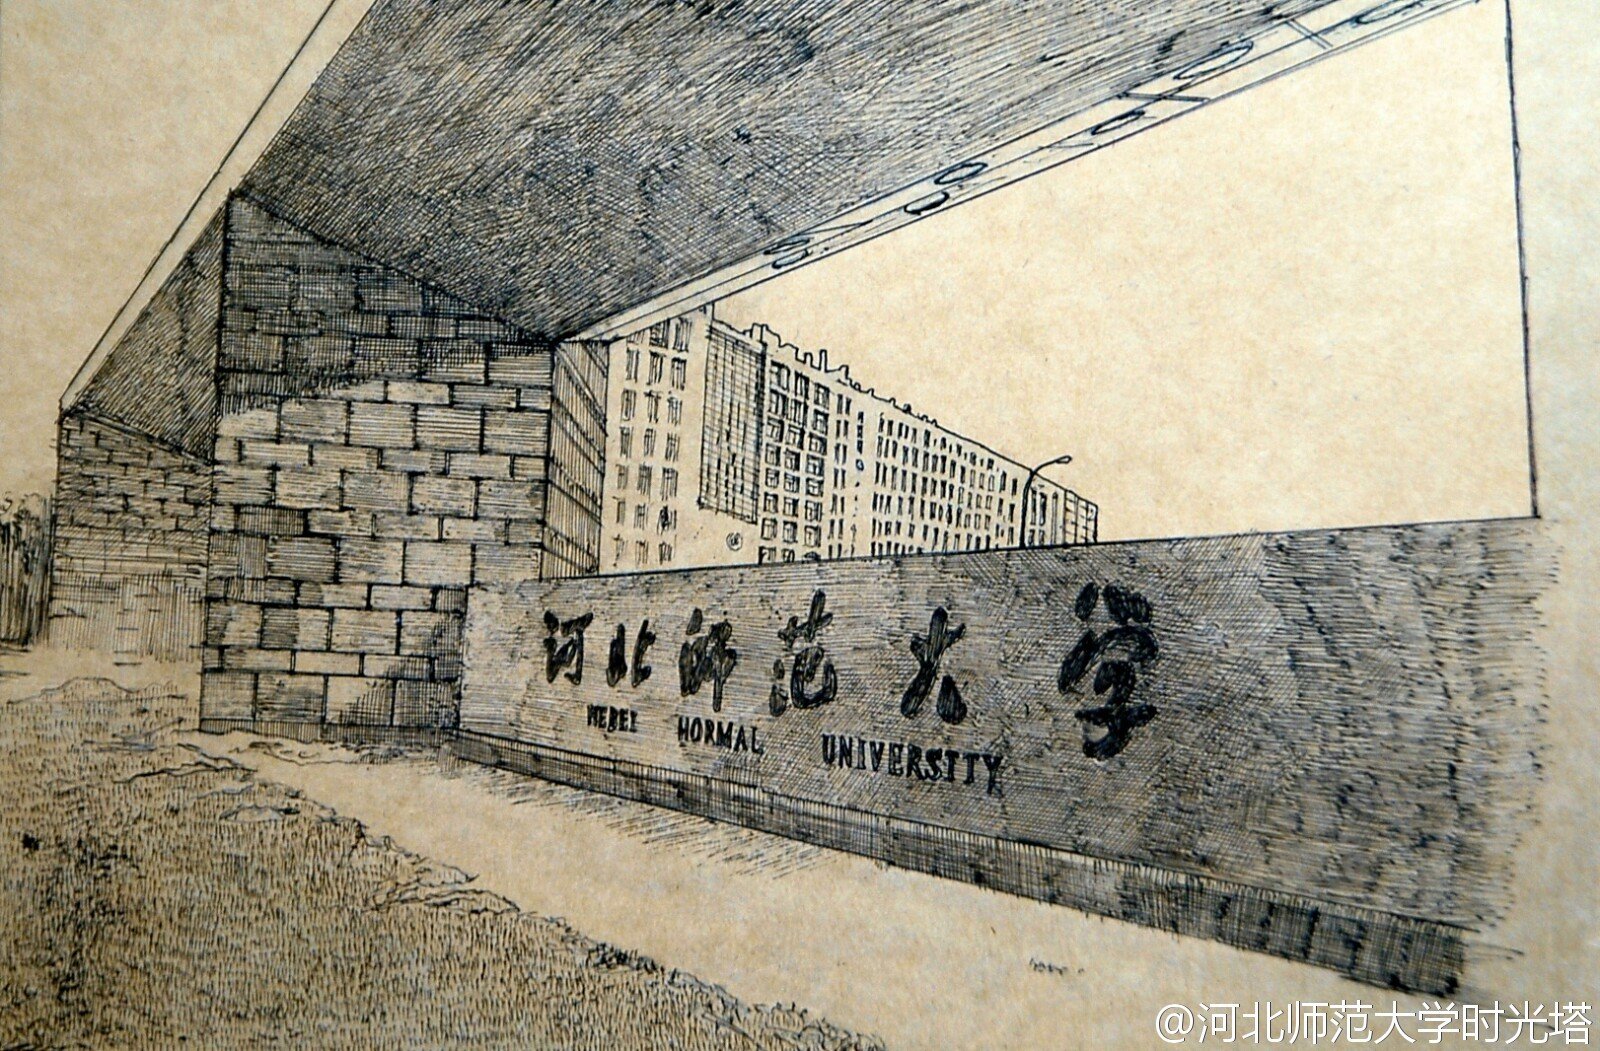 河北师范大学
HEBEI HORMAL UNIVERSITY
@河北师范大学时光塔